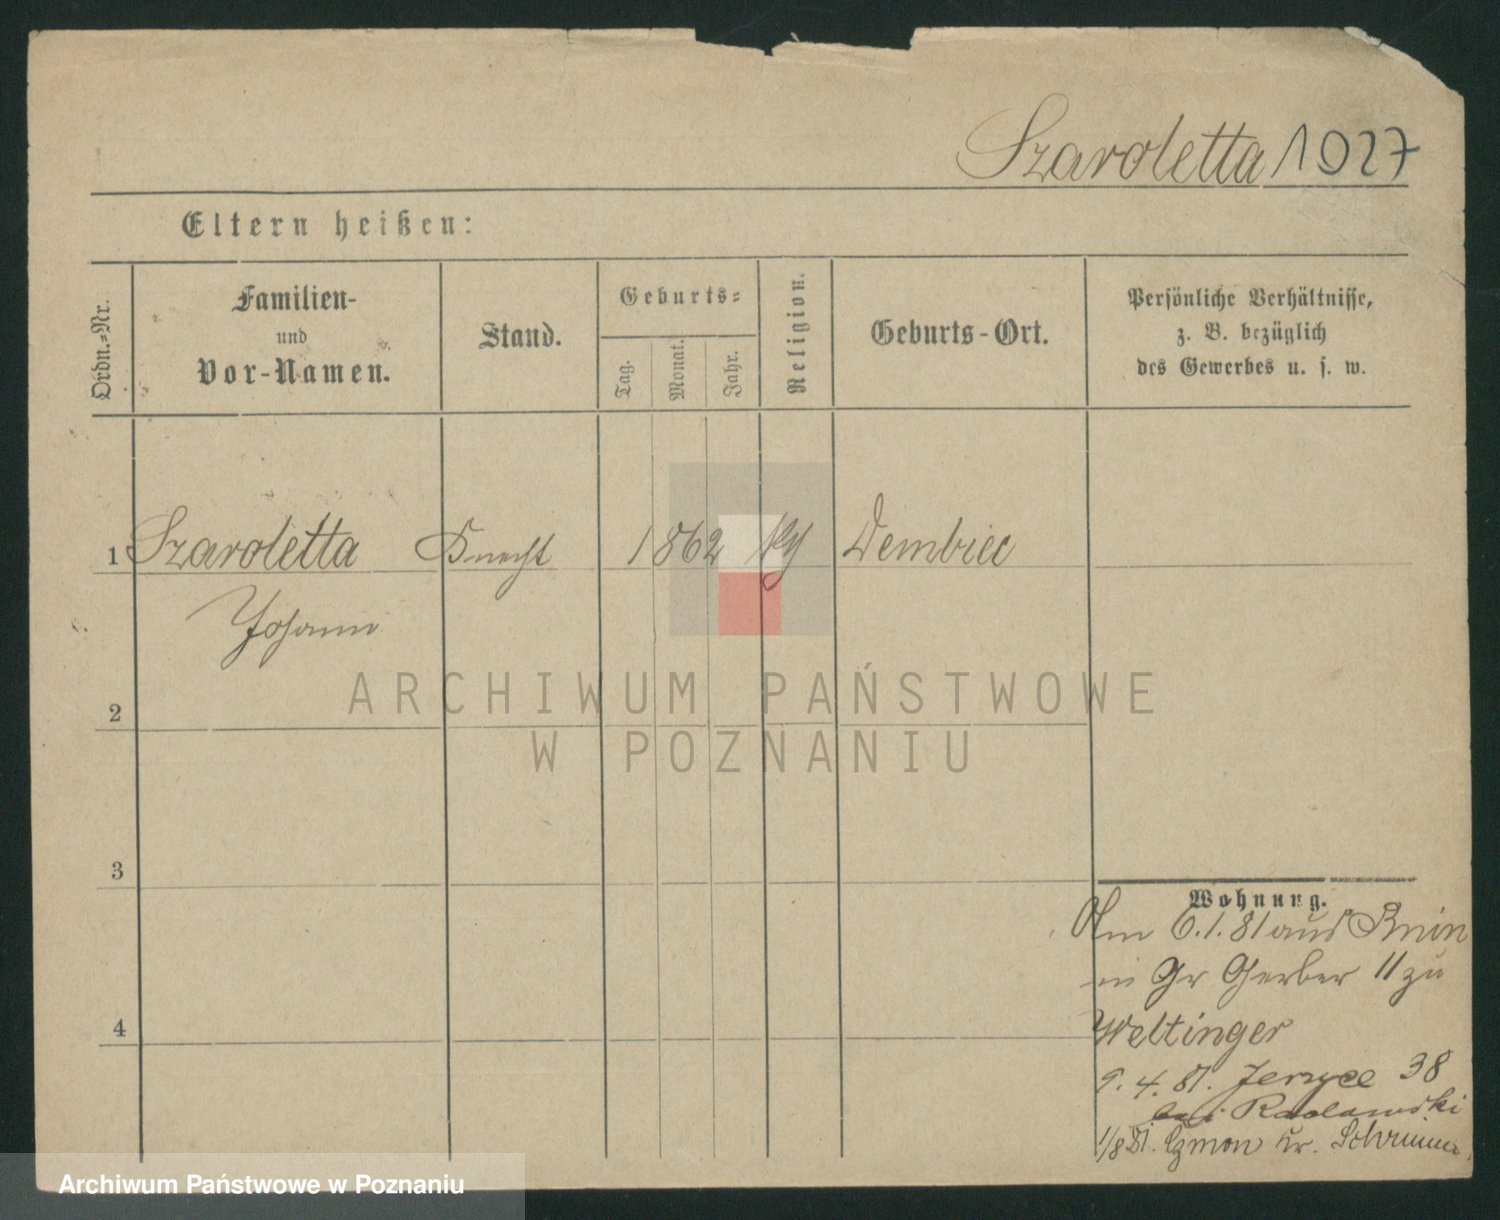 Szaroletta 1027
Eltern heißen:
Ordn.-Nr.
Familien-
und
Vor-Namen.
Stand.
Geburts-
Tag.
Monat.
Jahr.
Religion.
Geburts-Ort.
Persönliche Verhältnisse,
z. B. bezüglich
des Gewerbes u. s. w.
1 Szaroletta Knecht 1862 Dembiec
Johann
2
3
4
Wohnung.
Am 6.1.81 aus Bnin
in Gr Gerber 11 zu
Weltinger
9.4.81. Jerzyce 38
bei
1/8 81. Czmon Kr. Schrimm.
ARCHIWUM PAŃSTWOWE
W POZNANIU
Archiwum Państwowe w Poznaniu